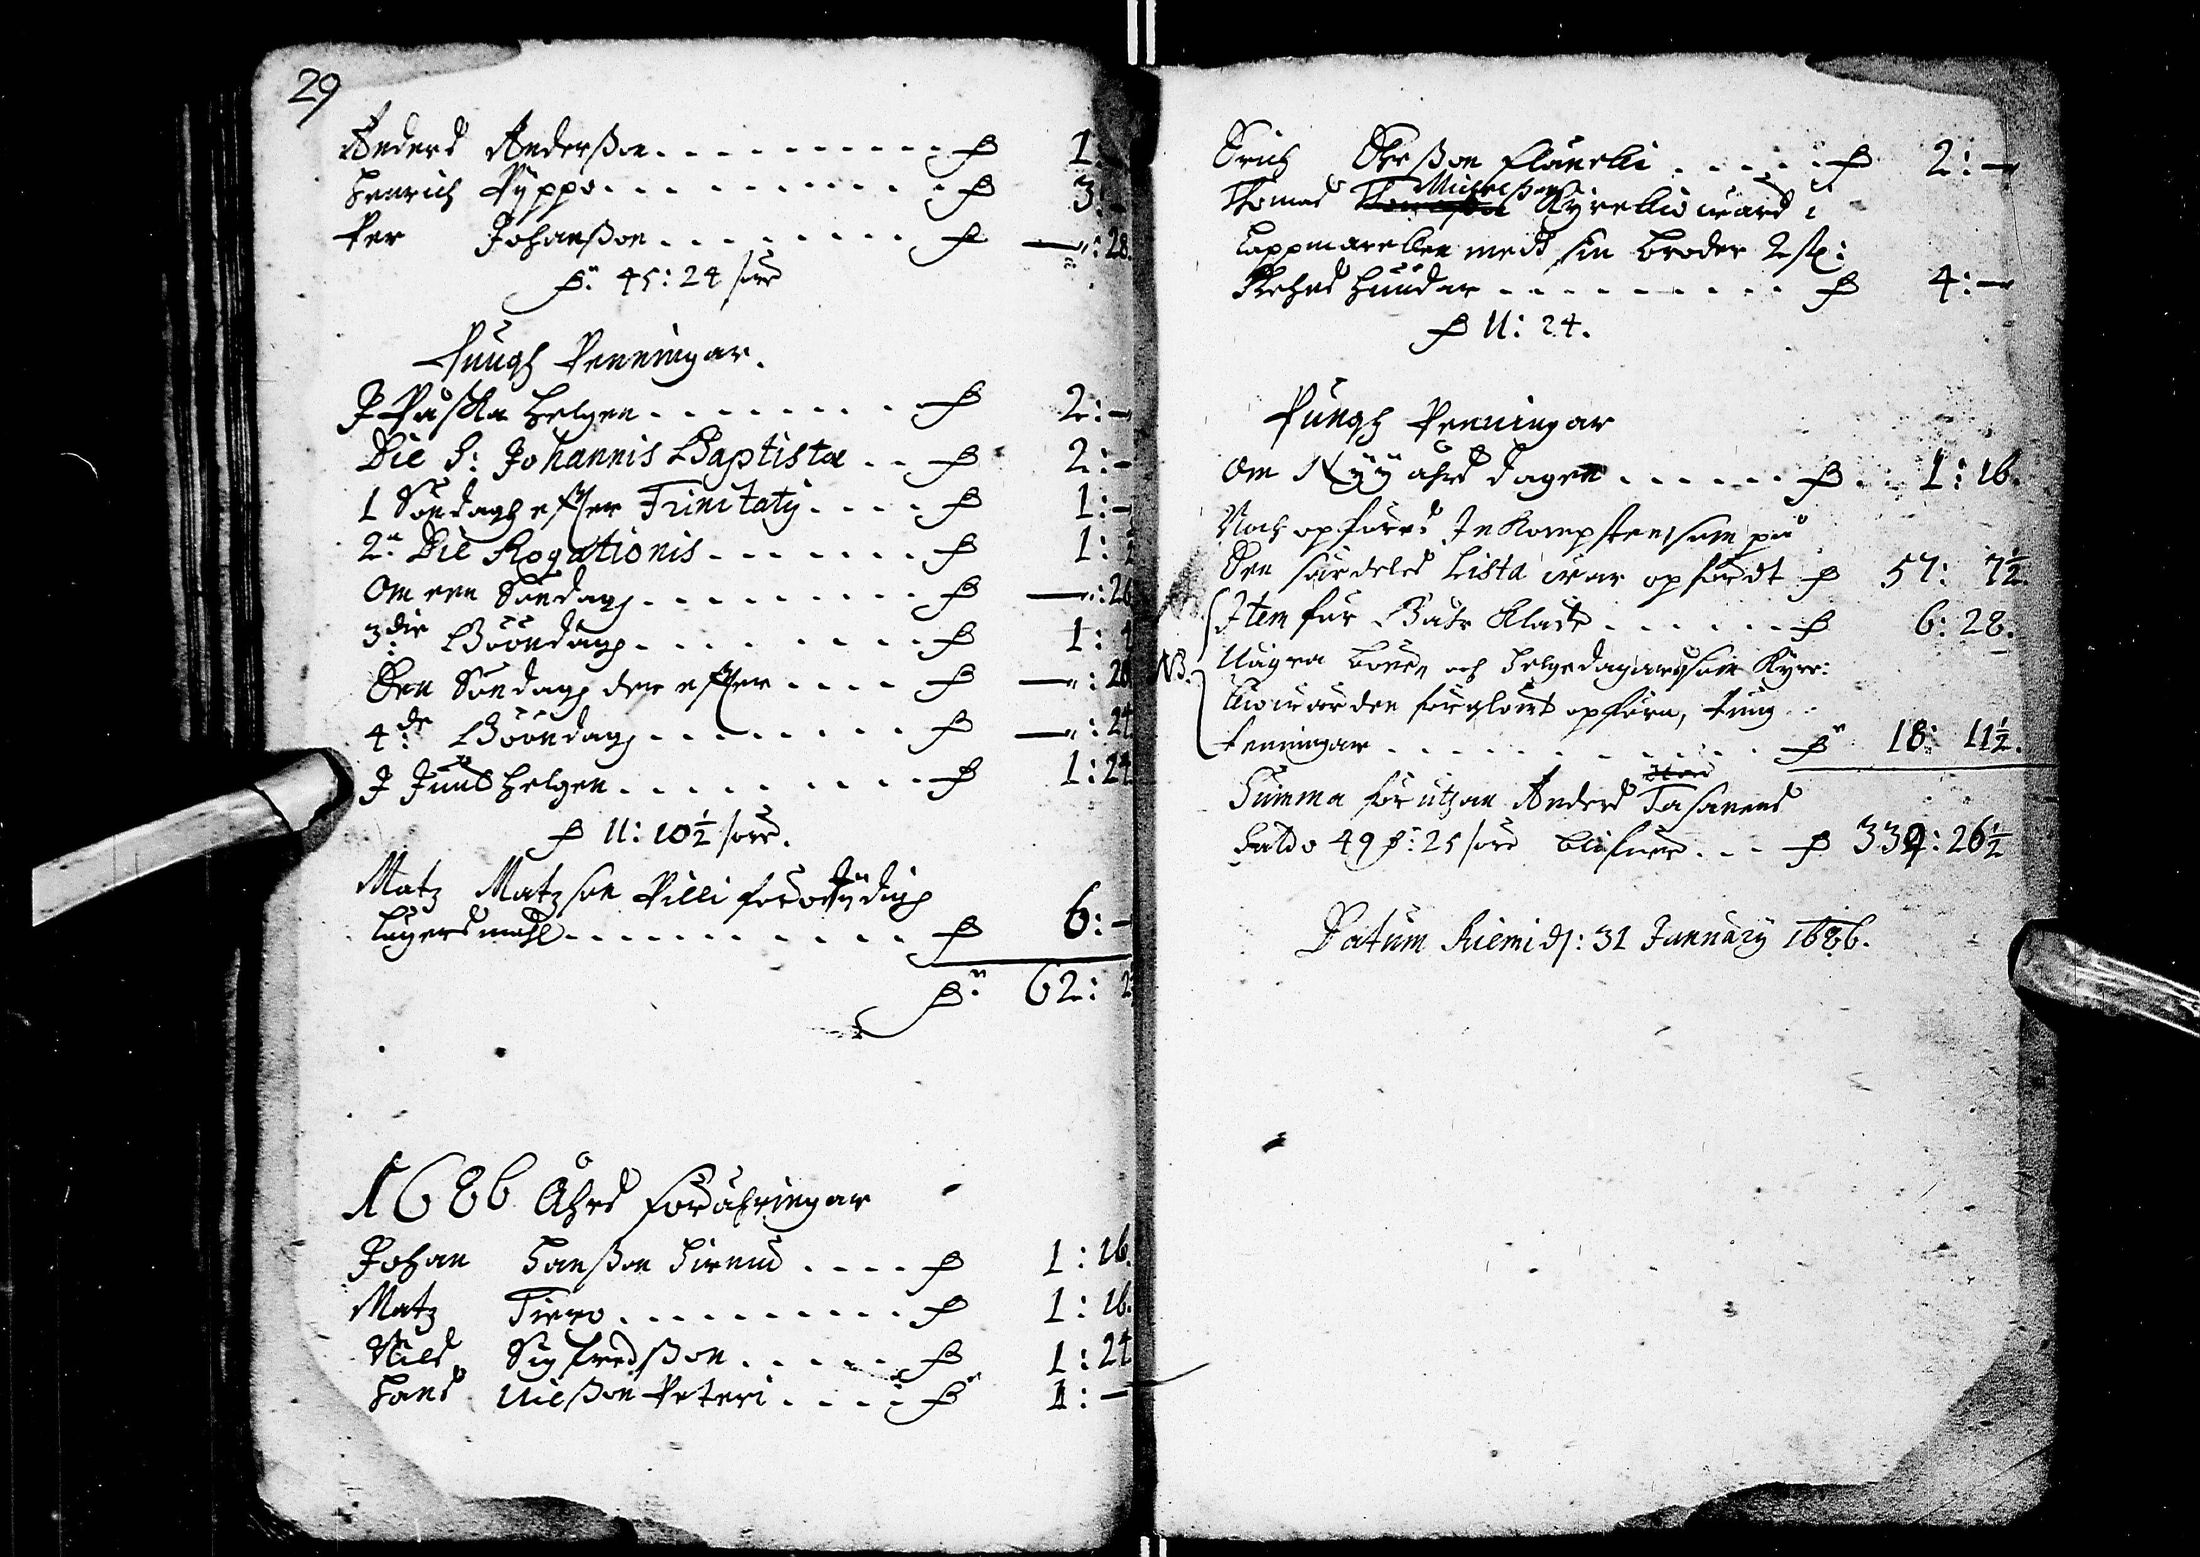 29
Anders Anderßon . . . . . . . . . . P 1
Henrich Pyppo . . . . . . . . . P 3:—
Per Johanßon . . . . . . . . P —: 28.
P: 45: 24 söre
Pungh Penningar.
J Påska Helgen . . . . . . . . P 2:—
Die S: Johannis Baptistæ . . P 2:—
1 Söndagh efter Trinitatij . . . . P 1:—
2:a Die Rogationis . . . . . . . P 1:
Om een Söndagh . . . . . . . . . P —: 26
3:die Bööndagh . . . . . . . . P 1:
Den Söndagh der efter . . . . P —: 28
4:de Bööndagh . . . . . . . . P —: 24
J Juul Helgen . . . . . . . . P 1: 24
P 11: 10½ söre.
Matz Matzson Pilli för otydigh
Lägersmåhl . . . . . . . . . . . P 6:—
P: 62: 2
1686 Åhrs Förähringar
Johan Hanßon . . . . P 1: 16.
Matz Tiero . . . . . . . . . P 1: 16.
Nils Sigfredßon . . . . . P 1: 24
Hans Nilßon Peteri . . . . P 1:—
Erich Erßon Flåncki . . . . . P 2:—
Thomas Michelßon Kyrckiowärd i
Lappmarcken medh sin broder 2 st:
Hundar . . . . . . . . . P 4:—
P 11: 24.
Pungh Penningar
Om Nyy åhrs dagen . . . . . . P 1: 16.
Noch opföres Inkompsten som på
Den särdeles Lista war opfördt P 57: 7½.
Item för Båår Kläde . . . . . . P 6: 28.
NB. Några böne och Helgedagar som Kyrc:
kiowärden förglömt opföra, Pung
Penningar . . . . . . . . . . . P 18: 11½.
Summa förutan Anders Tasanens
Saldo 49 P: 25 söre blifwer . . . P 339: 26½
Datum Kiemi d: 31 Januarij 1686.